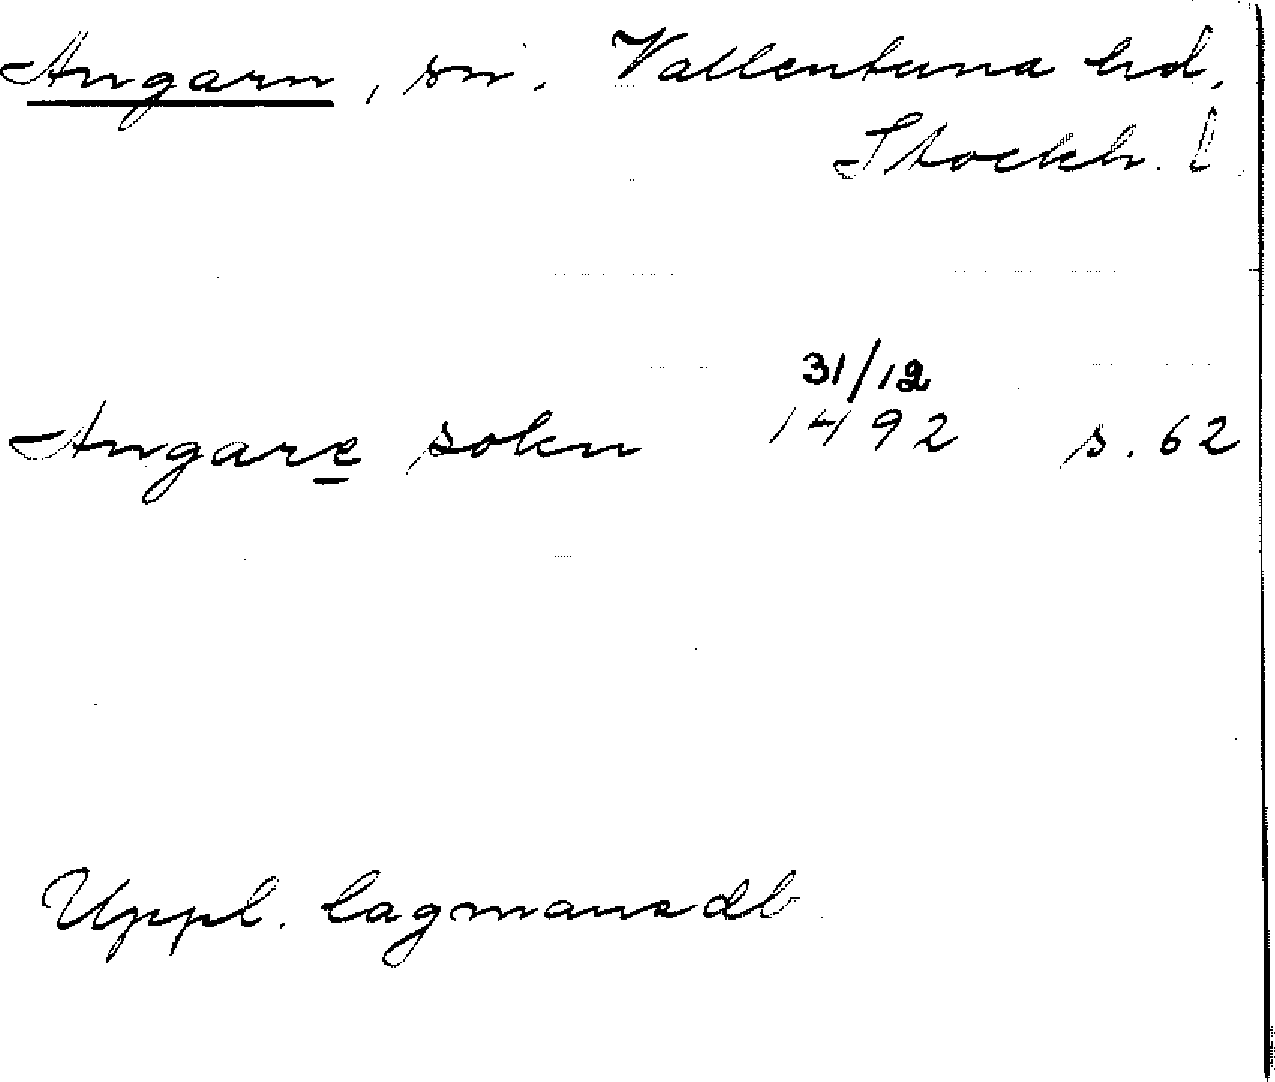 Angarn, sn. Vallentuna hd,
Stockh. l.
31/12
Angare sokn 1492 s. 62
Uppl. lagmansdb